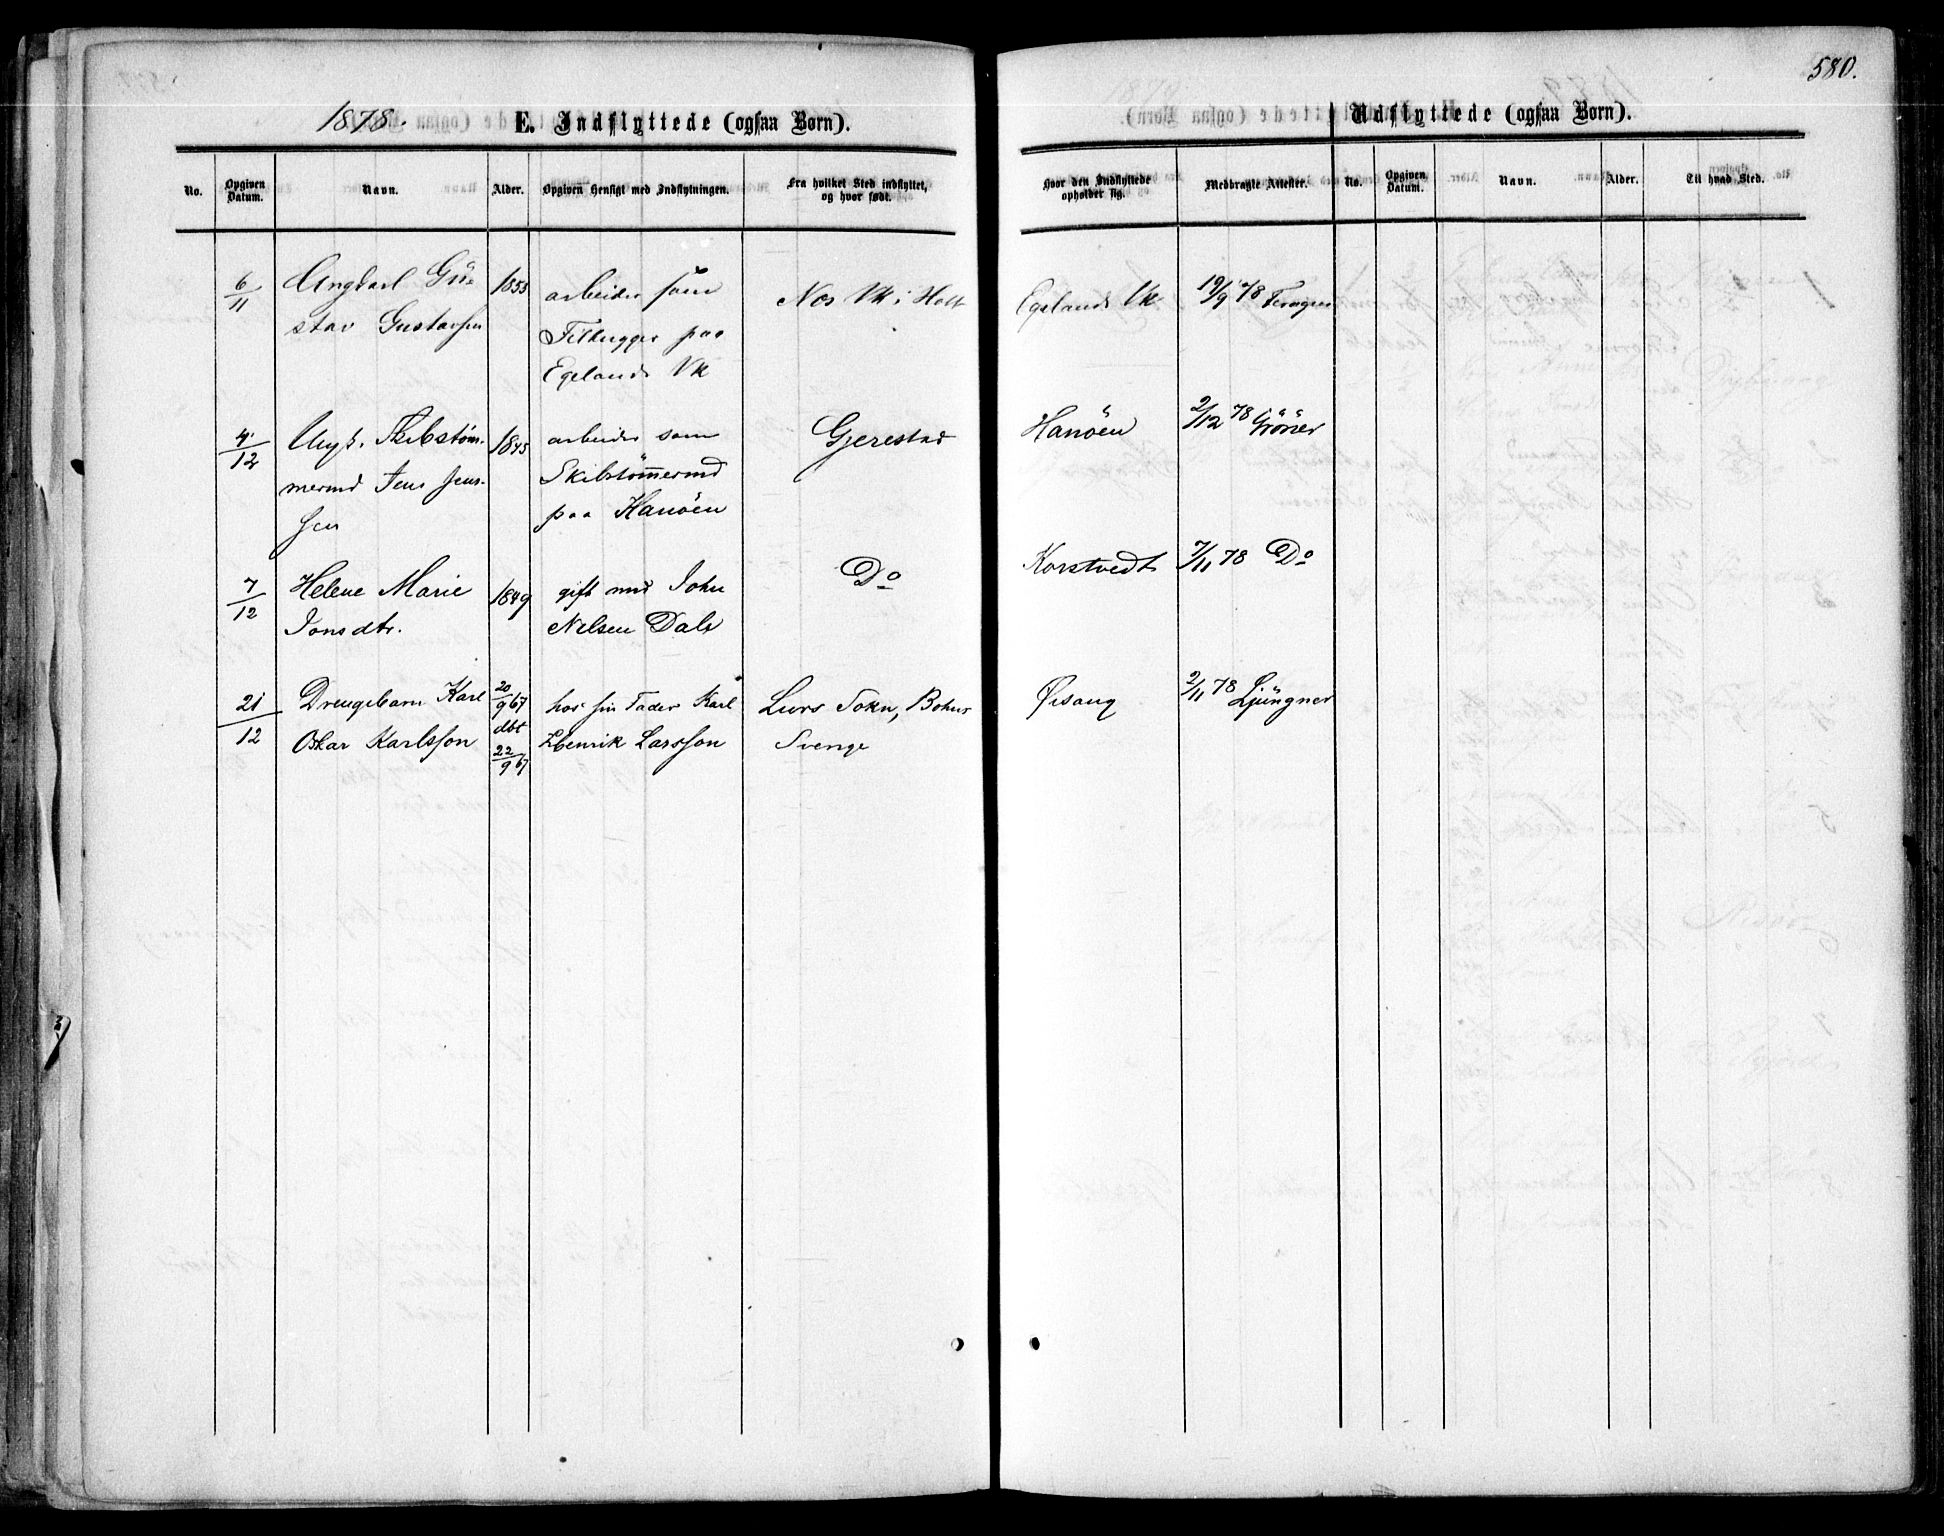 580.
1878.
E. Indflyttede (ogsaa Børn).
Udflyttede (ogsaa Børn).
No.
Opgiven Datum.
Navn.
Alder.
Opgiven Hensigt med Indflytningen.
Fra hvilket Sted indflyttet, og hvor født.
Hvor den Indflyttede opholder sig.
Medbragte Attester.
No.
Opgiven Datum.
Navn.
Alder.
Til hvad Sted.
6/11
Ungkarl Gü-
stav Gustavsen
1853
arbeider som
Filhugger paa
Egelands Vk
Næs Vk i Holt
Egelands Vk
19/9 78
4/12
Ungk. Skibstøm-
mermd Jens Jens-
sen
1845
arbeider som
Skibstømmermd
paa Hanöen
Gjerestad
Hanöen
2/12 78 Gröner
7/12
Helene Marie
Jonsdtr.
1849
gift med John
Nelsen Dale
Do
Korstvedt
7/11 78 Do
21/12
Drengebarn Karl
Oskar Karlsson
20/9 67
dbt
22/9 67
hos sin Fader Karl
Henrik Larsson
Lurs Sokn, Bohus
Sverige
Øisang
2/11 78 Ljüngner